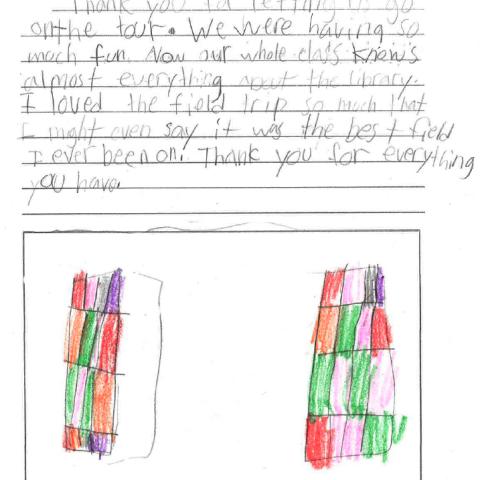 Thank you for letting us go
on the tour. We were having so
much fun. Now our whole class knows
almost everything about the library.
I loved the field trip so much that
I might even say it was the best field
I ever been on. Thank you for everything
you have.